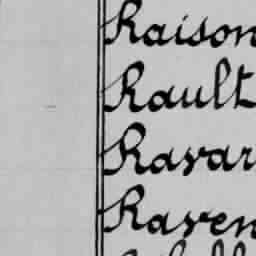 Raison
Rault
Ravar
Raven